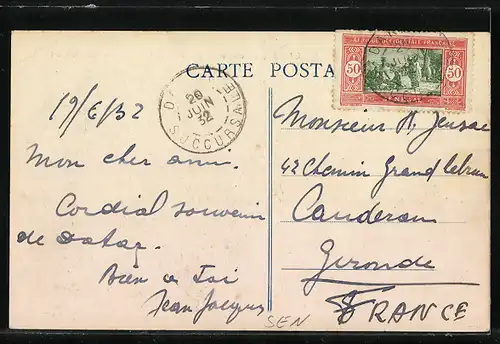 CARTE POSTA
AFRIQUE OCCIDENTALE FRANÇAISE
50 50
SÉNÉGAL
20
JUIN
32
SUCCURSALE
19/6/32
Mon cher ami.
Cordial souvenir
de Dakar.
Bien à Toi
Jean Jacques
Monsieur
42 Chemin Grand Lebrun
Cauderan
Gironde
FRANCE
SEN